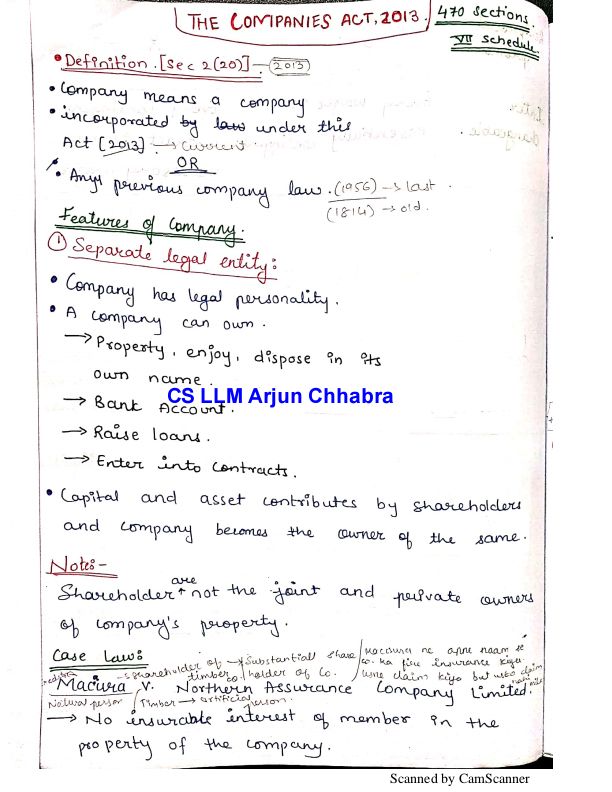 THE COMPANIES ACT, 2013.
470 sections.
VII schedule.
• Definition. [Sec 2(20)] — (2013)
• Company means a company
• incorporated by law under this
Act [2013] → current
OR
• Any previous company law. (1956) → last.
(1814) → old.
Features of Company.
① Separate legal entity:
• Company has legal personality.
• A company can own.
→ Property, enjoy, dispose in its
own name.
CS LLM Arjun Chhabra
→ Bank Account.
→ Raise loans.
→ Enter into contracts.
• Capital and asset contributes by shareholders
and company becomes the owner of the same.
Note:-
Shareholder are not the joint and private owners
of company's property.
Case Law:
shareholder of timber co. → Substantiall share holder of Co.
Macura ne apne naam se
co. ka fire insurance kiya
usne claim kiya but usko claim
Macura v. Northern Assurance Company Limited.
Natural person
Timber → artificial person.
→ No insurable interest of member in the
property of the company.
Scanned by CamScanner